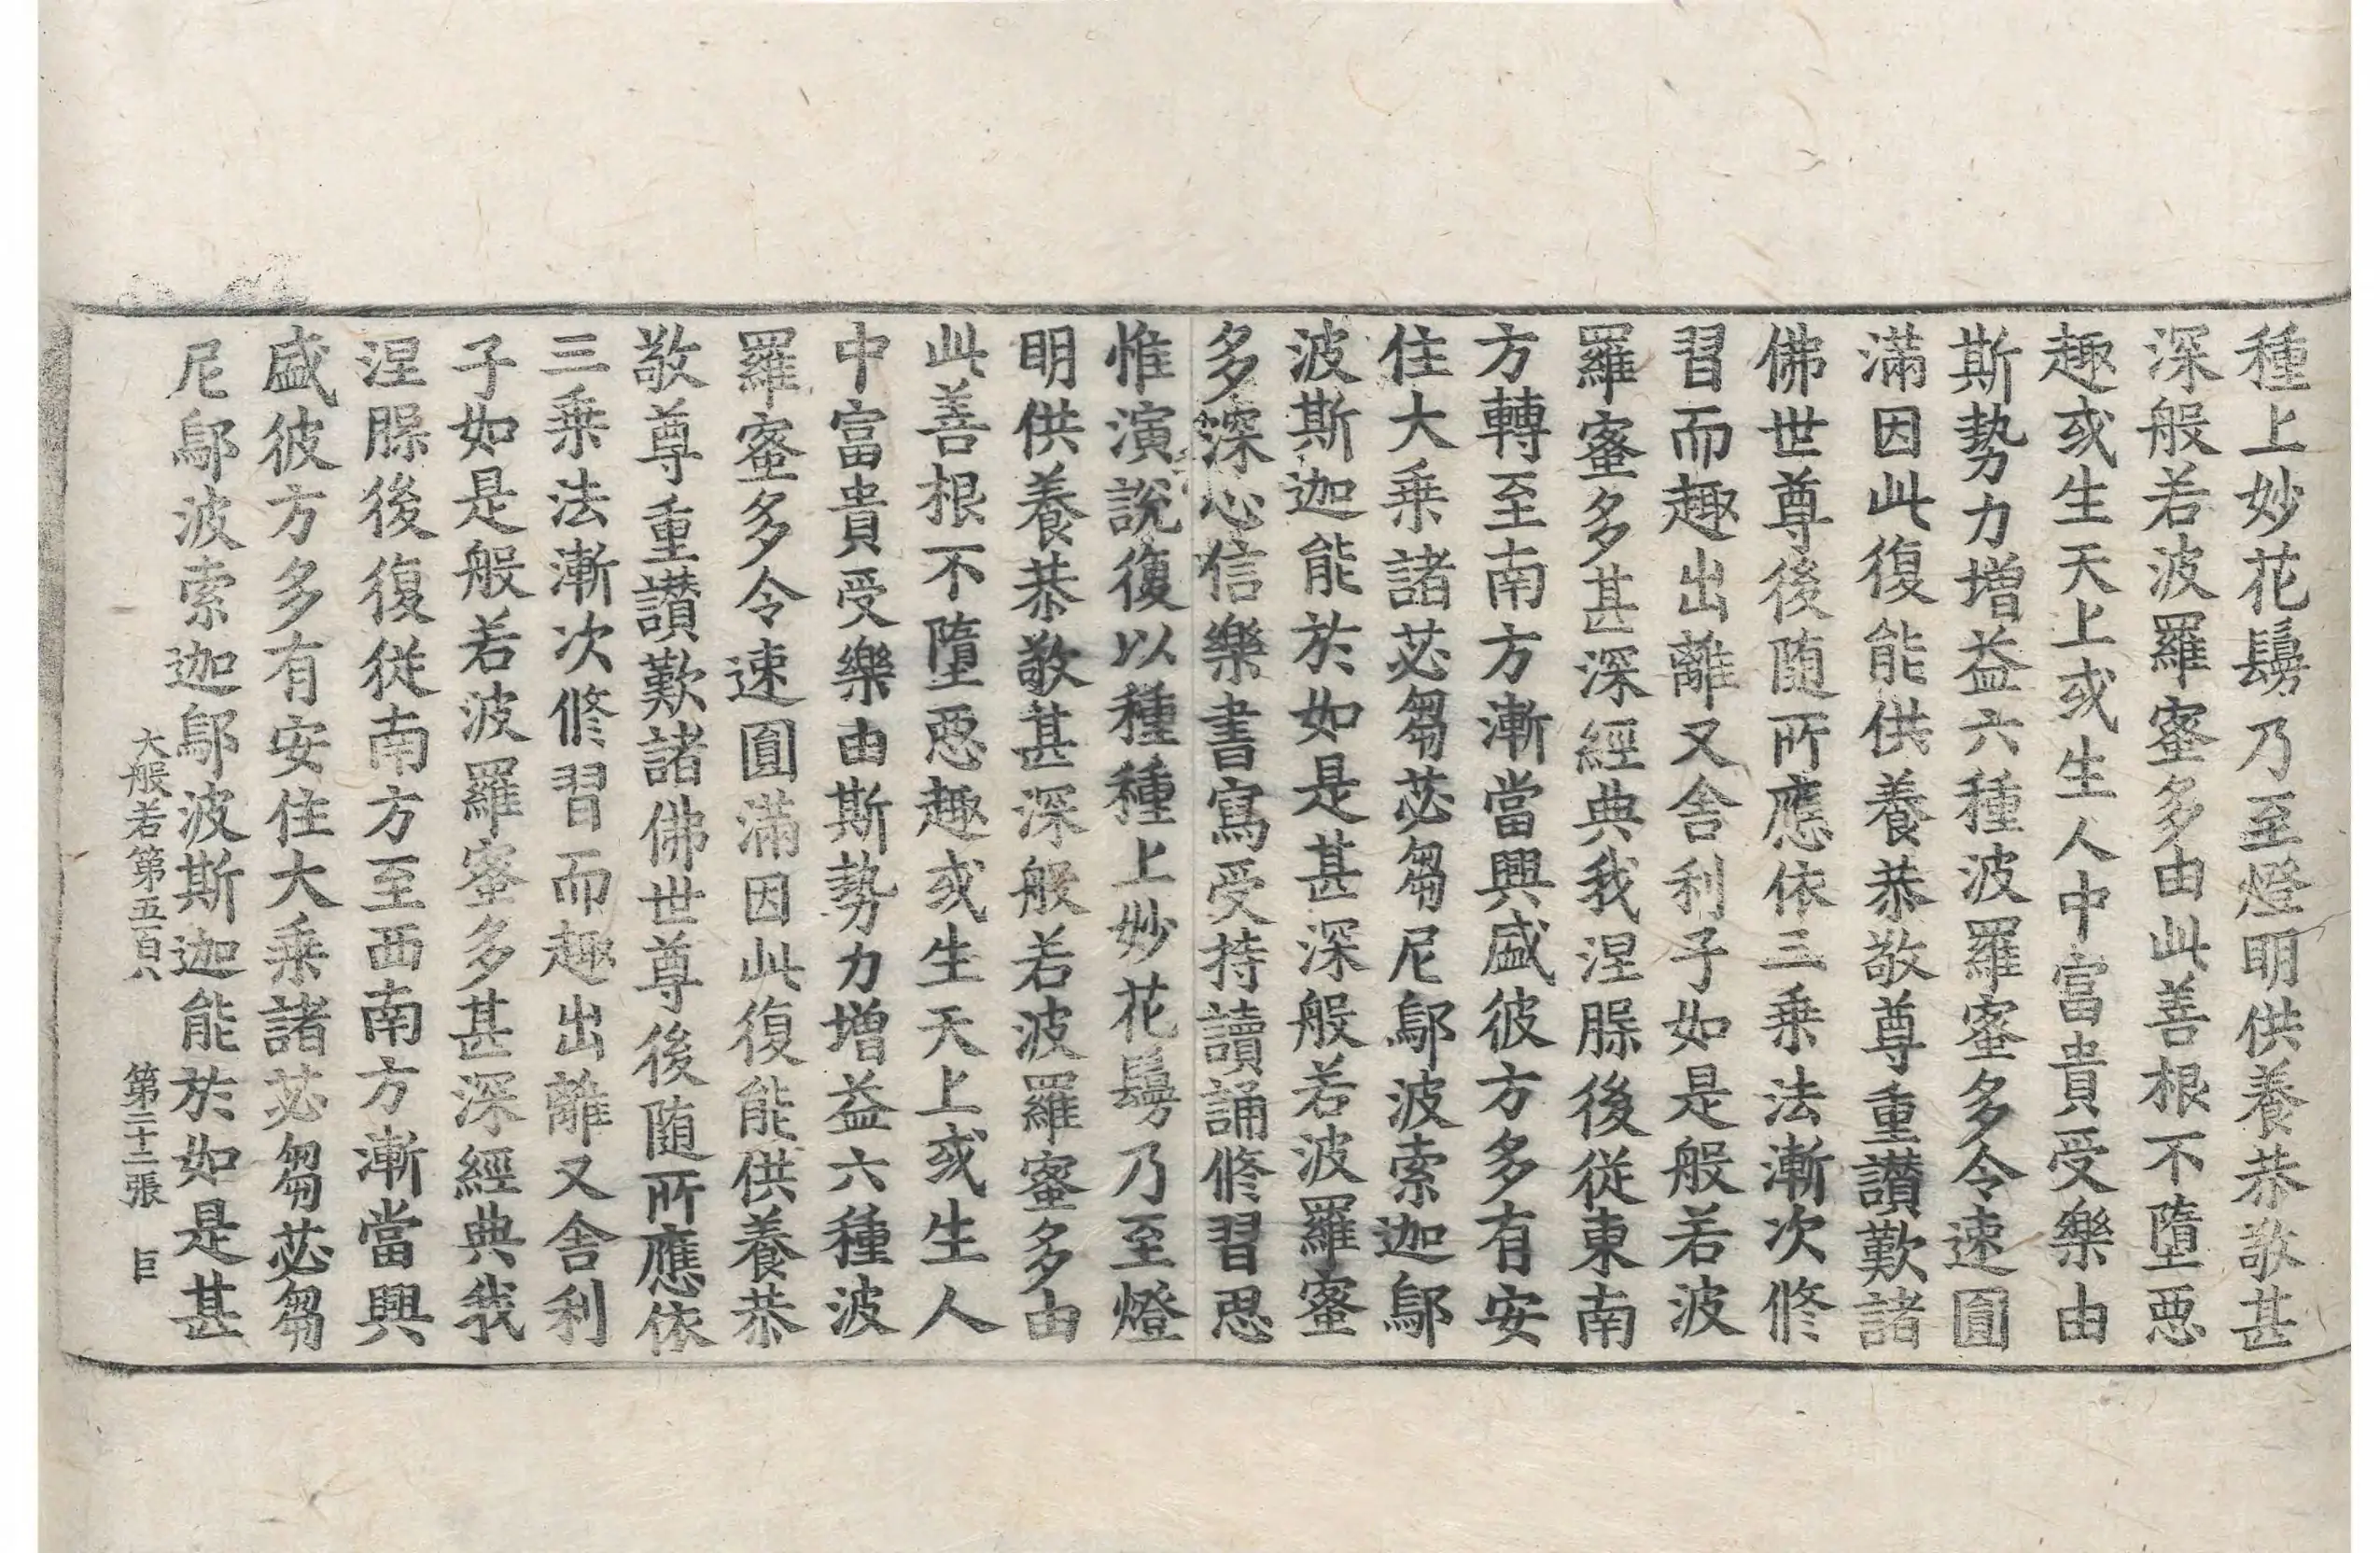 種上妙花鬘乃至燈明供養恭敬甚
深般若波羅蜜多由此善根不墮惡
趣或生天上或生人中富貴受樂由
斯勢力增益六種波羅蜜多令速圓
滿因此復能供養恭敬尊重讃歎諸
佛世尊後随所應依三乗法漸次修
習而趣出離又舍利子如是般若波
羅蜜多甚深經典我涅槃後従東南
方轉至南方漸當興盛彼方多有安
住大乗諸苾芻苾芻尼鄔波索迦鄔
波斯迦能於如是甚深般若波羅蜜
多深心信樂書寫受持讀誦修習思
惟演說復以種種上妙花鬘乃至燈
明供養恭敬甚深般若波羅蜜多由
此善根不墮惡趣或生天上或生人
中富貴受樂由斯勢力增益六種波
羅蜜多令速圓滿因此復能供養恭
敬尊重讃歎諸佛世尊後随所應依
三乗法漸次修習而趣出離又舍利
子如是般若波羅蜜多甚深經典我
涅槃後復従南方至西南方漸當興
盛彼方多有安住大乗諸苾芻苾芻
尼鄔波索迦鄔波斯迦能於如是甚
大般若第五百八 第二十二張 巨